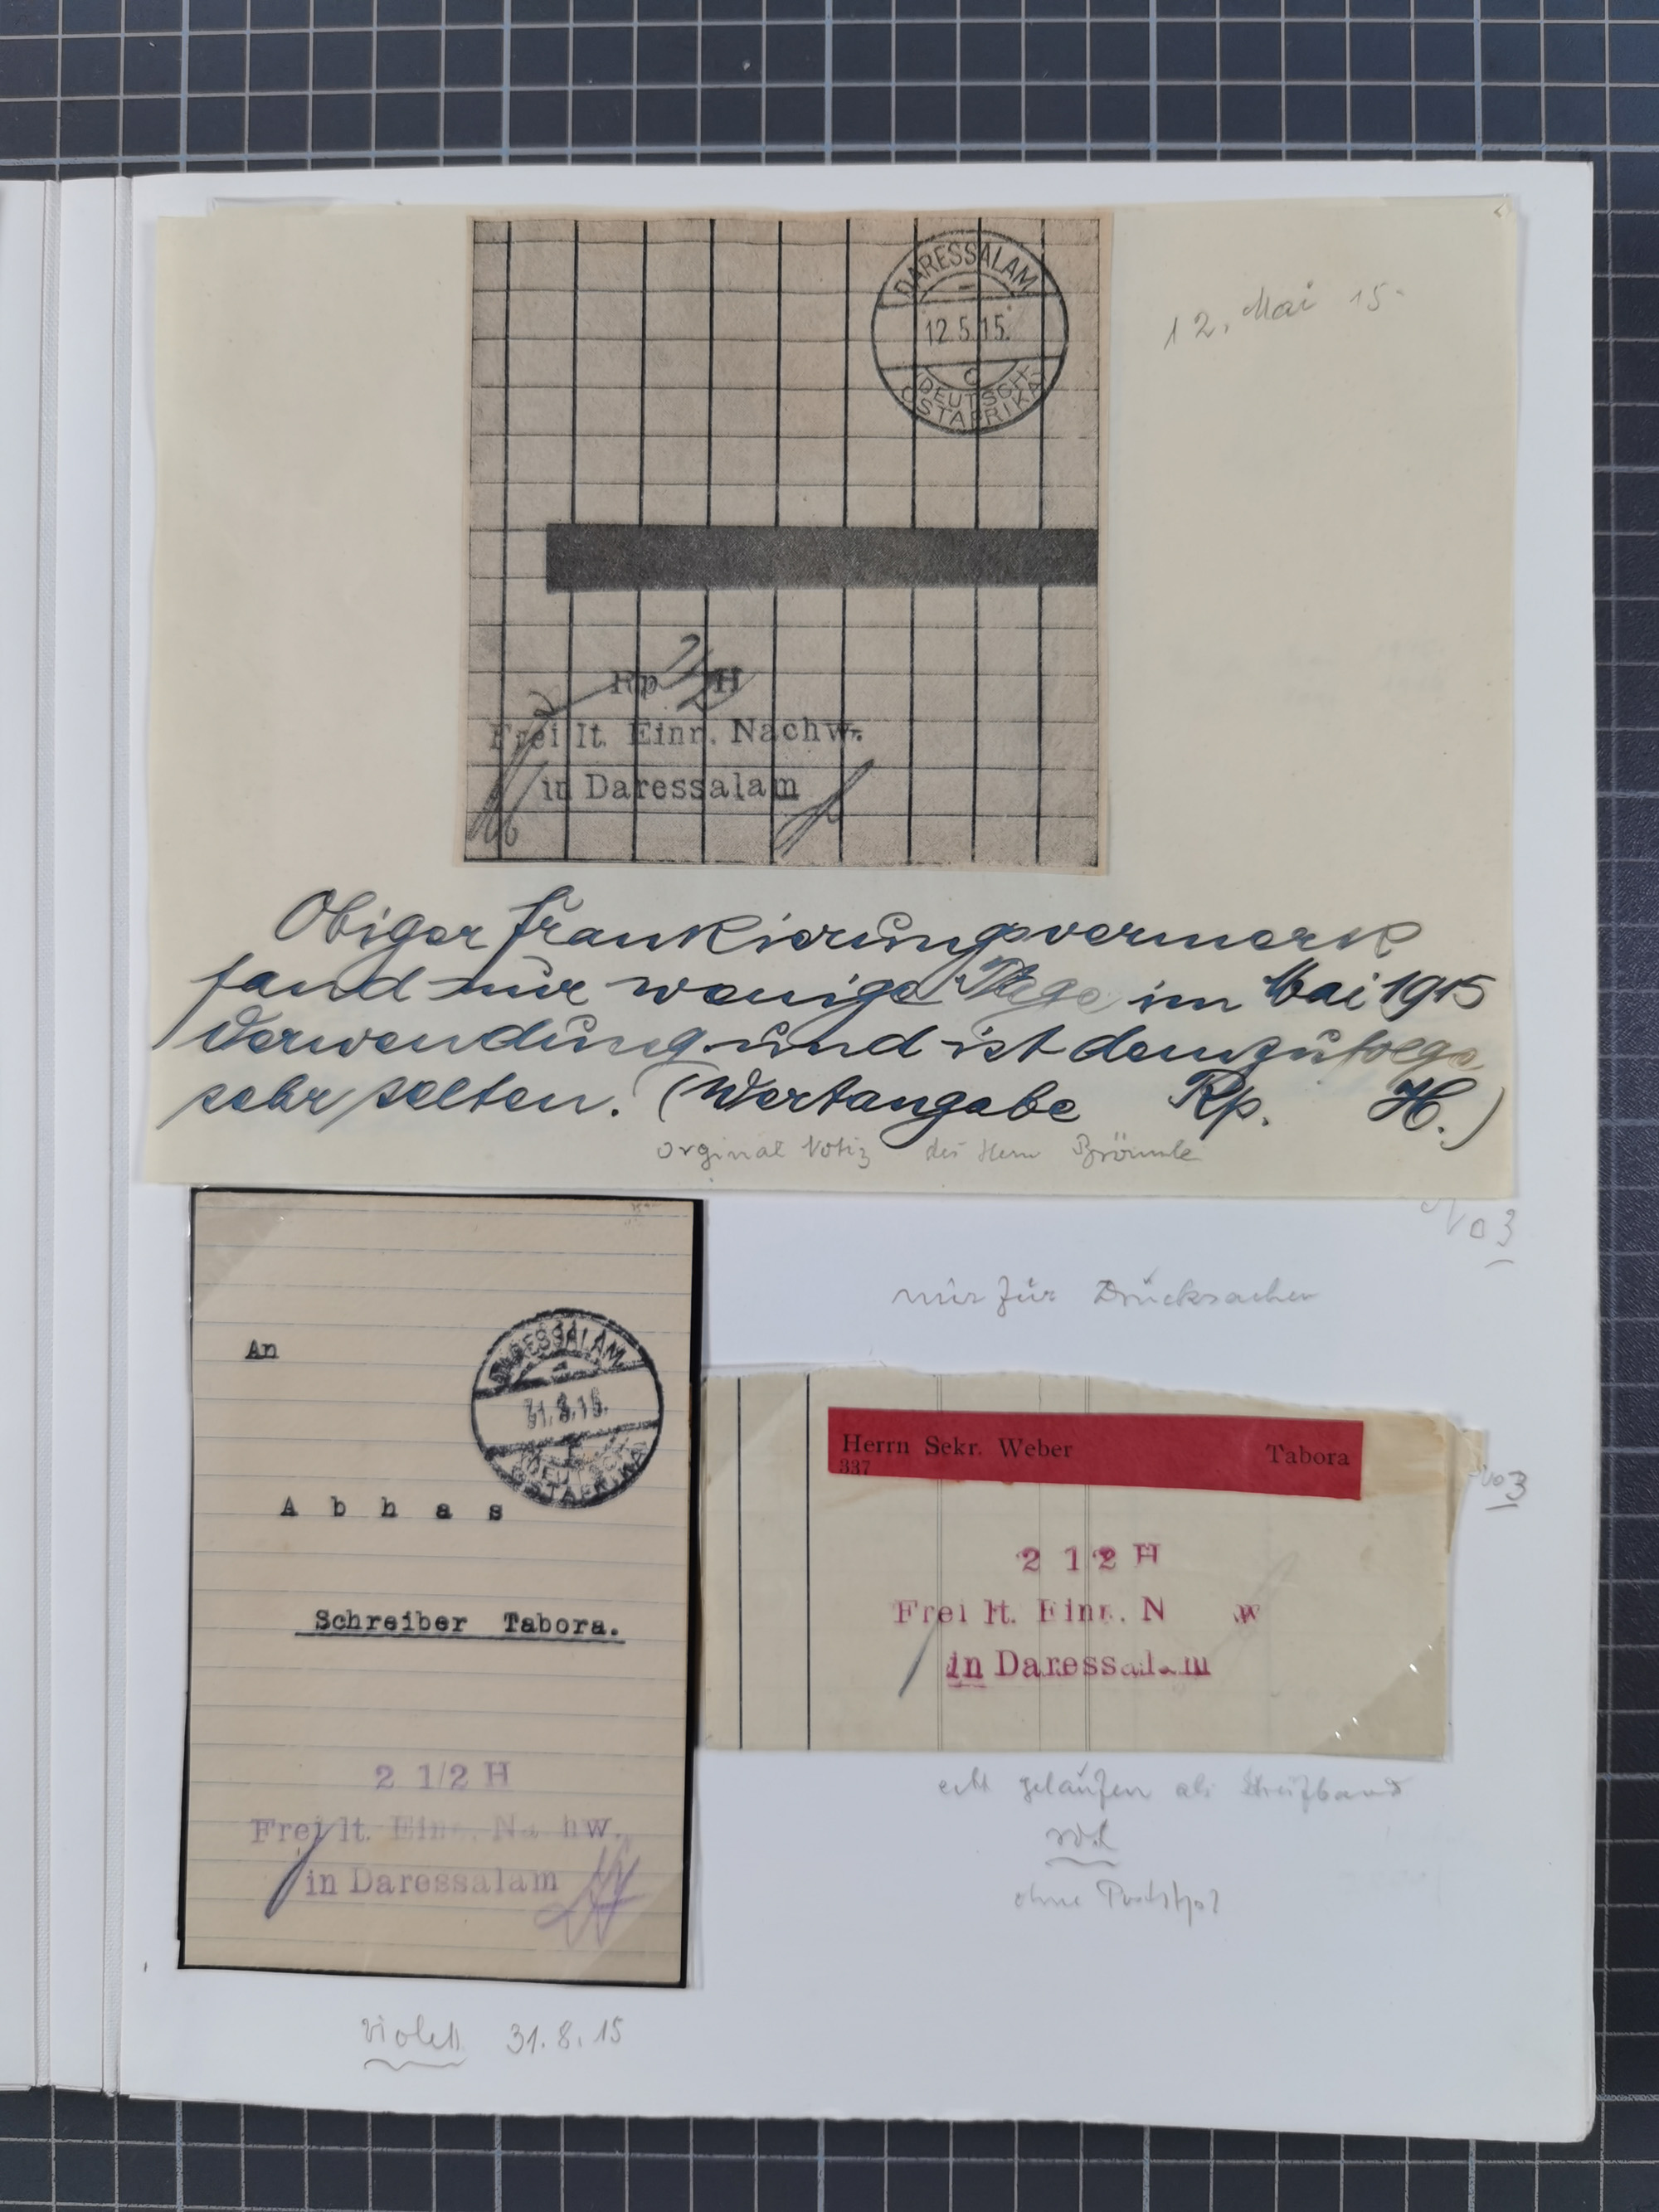 DARESSALAM
12.5.15.
c
DEUTSCH-
OSTAFRIKA
12. Mai 15
Rp 2 1/2 H
Frei lt. Einn. Nachw.
in Daressalam
Obiger Frankierungsvermerk
fand nur wenige Tage im Mai 1915
Verwendung und ist demzufolge
sehr selten. (Wertangabe Rp. H.)
orginal Notiz des Herrn
No 3
nur für Drucksachen
An
DARESSALAM
31.8.15.
DEUTSCH-
OSTAFRIKA
A b h a s
Schreiber Tabora.
2 1/2 H
Frei lt. Einn. Nachw.
in Daressalam
Herrn Sekr. Weber Tabora
337
No 3
2 1 2 H
Frei lt. Einn. N w
in Daressalam
echt gelaufen als Streifband
rot
ohne
violett 31.8.15